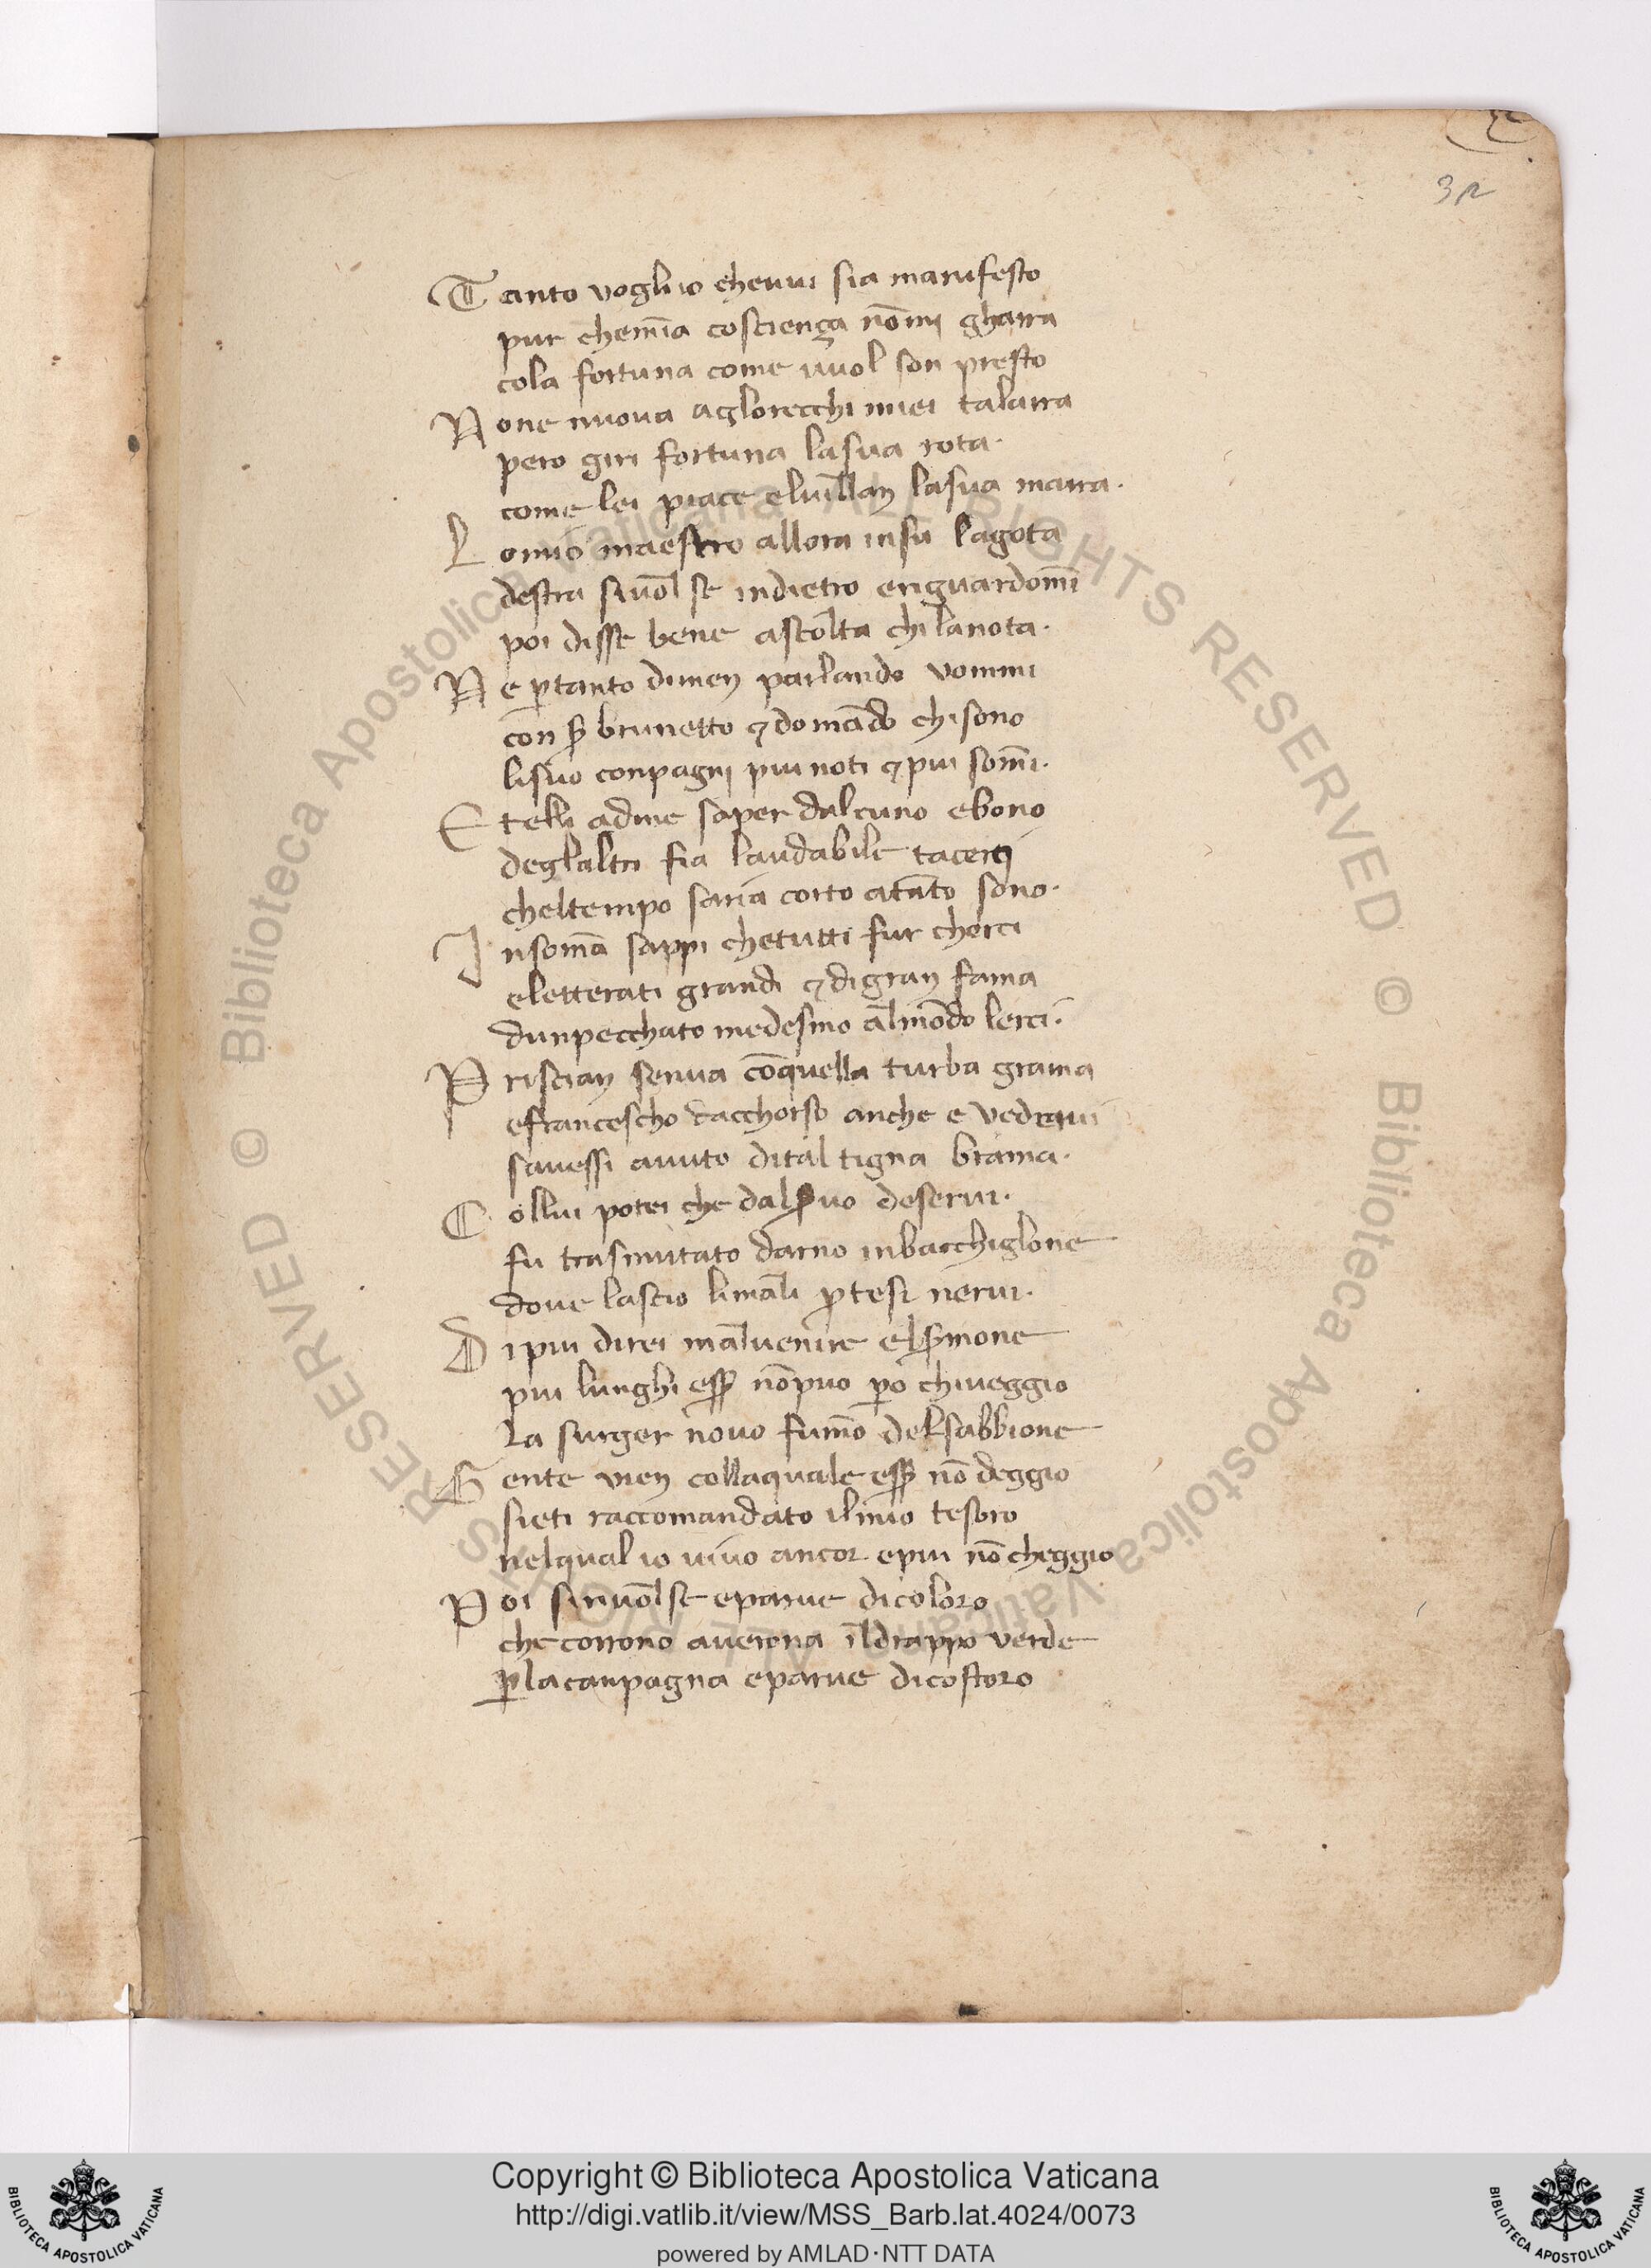 32
Tanto voglio chevvi sia manifesto
pur chemīa coscienҫa nōmi gharra
cola fortuna come vuol son presto
None nuova agloreccħi miei talarra
pero giri fortuna lasua rota·
come lei piace elvi̅llan lasua marra·
Lomio maestro allora insu lagota
destra sivo̅lse indietro eriguardomī
poi disse bene asco̅lta chi lanota·
Ne ꝑtanto dimen parlando vommi
con s̅ brunetto ⁊domādo chisono
lisuo conpagni piu noti ⁊piu som̄i·
Etelli adme saper dalcuno ebono
deglaltri fia laudabile tacerci
cheltempo saria corto atāto sono·
Insomā sappi chetutti fur cherci
eletterati grandi ⁊digran fama
dunpecchato medesmo a̅lmōdo lerci·
Priscian senva cōquella turba grama
efrancescho dacchorso anche e vedrevi
savessi avuto dital tigna brama·
Collui potei che dals̅vo deservi·
fu trasmutato darno inbacchiglone
dove lascio lima̅li ꝑtesi nervi·
Dipiu direi ma̅lvenire els̅mone
piu lunghi ess̅ nōpuo ꝑo chiveggio
la surger novo fum̄o delsabbione
Gente vien collaquale ess̅ nō deggio
sieti raccomandato ilmio tesoro
nelqual io vivo ancor epiu nō cheggio
Poi sirivo̅lse eparve dicoloro
checorrono averona i̅ldrappo verde
ꝑlacanpagna eparve dicostoro
© Biblioteca Apostolica Vaticana ALL RIGHTS RESERVED
© Biblioteca Apostolica Vaticana ALL RIGHTS RESERVED
Copyright © Biblioteca Apostolica Vaticana
http://digi.vatlib.it/view/MSS_Barb.lat.4024/0073
powered by AMLAD·NTT DATA
BIBLIOTECA APOSTOLICA VATICANA
BIBLIOTECA APOSTOLICA VATICANA